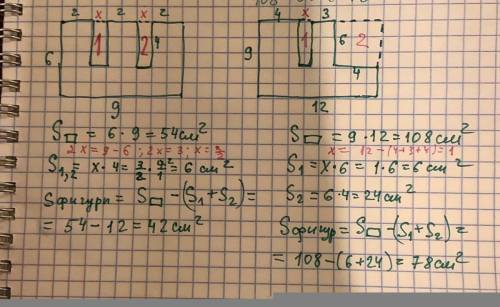 2 x 2 x 2
6 1 2 4
9
S▭ = 6 · 9 = 54 см²
2x = 9 - 6 ; 2x = 3 ; x = 3/2
S₁,₂ = x · 4 = 3/2 · 4²/1 = 6 см²
Sфигуры = S▭ - (S₁ + S₂) =
= 54 - 12 = 42 см²
4 x 3
9 1 6 2
4
12
S▭ = 9 · 12 = 108 см²
x = 12 - (4+3+4) = 1
S₁ = x · 6 = 1 · 6 = 6 см²
S₂ = 6 · 4 = 24 см²
Sфигур = S▭ - (S₁ + S₂) =
= 108 - (6 + 24) = 78 см²